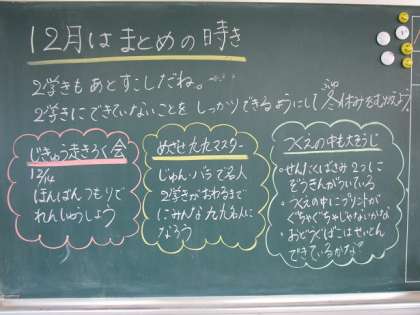 12月はまとめの時き
2学きもあとすこしだね。
2学きにできていないことをしっかりできるようにして冬休みをむかえよう。
ふゆ
じきゅう走きろく会
12/14
ほんばんつもりで
れんしゅうしよう
めざせ九九マスター
じゅん・バラで名人
2学きがおわるまで
にみんな九九名人に
なろう
つくえの中も大そうじ
・せんたくばさみ2つに
ぞうきんがついている
・つくえの中にプリントが
ぐちゃぐちゃじゃないかな
・おどうぐばこはせいとん
できているかな?